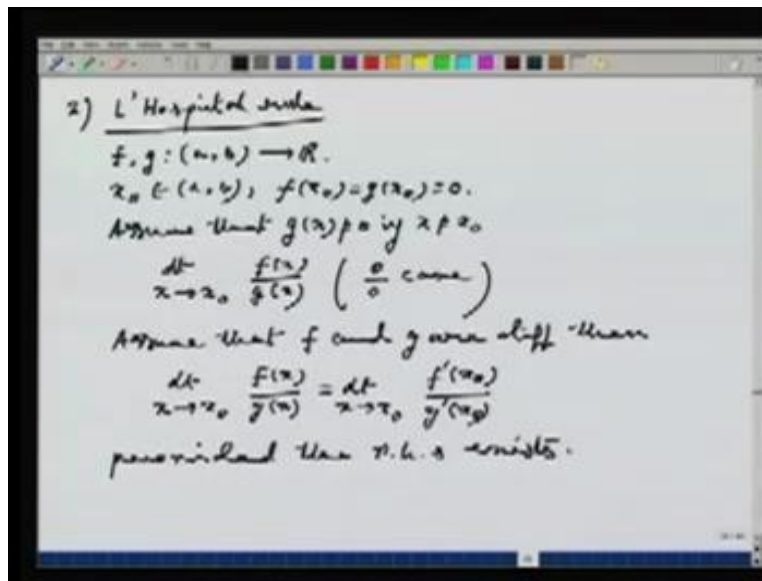 2) L'Hospital rule
f, g : (a, b) → ℝ.
x₀ ∈ (a, b), f(x₀) = g(x₀) = 0.
Assume that g(x) ≠ 0 if x ≠ x₀
lt x→x₀ f(x)/g(x) (0/0 case)
Assume that f and g are diff then
lt x→x₀ f(x)/g(x) = lt x→x₀ f'(x₀)/g'(x₀)
provided the r.h.s exists.